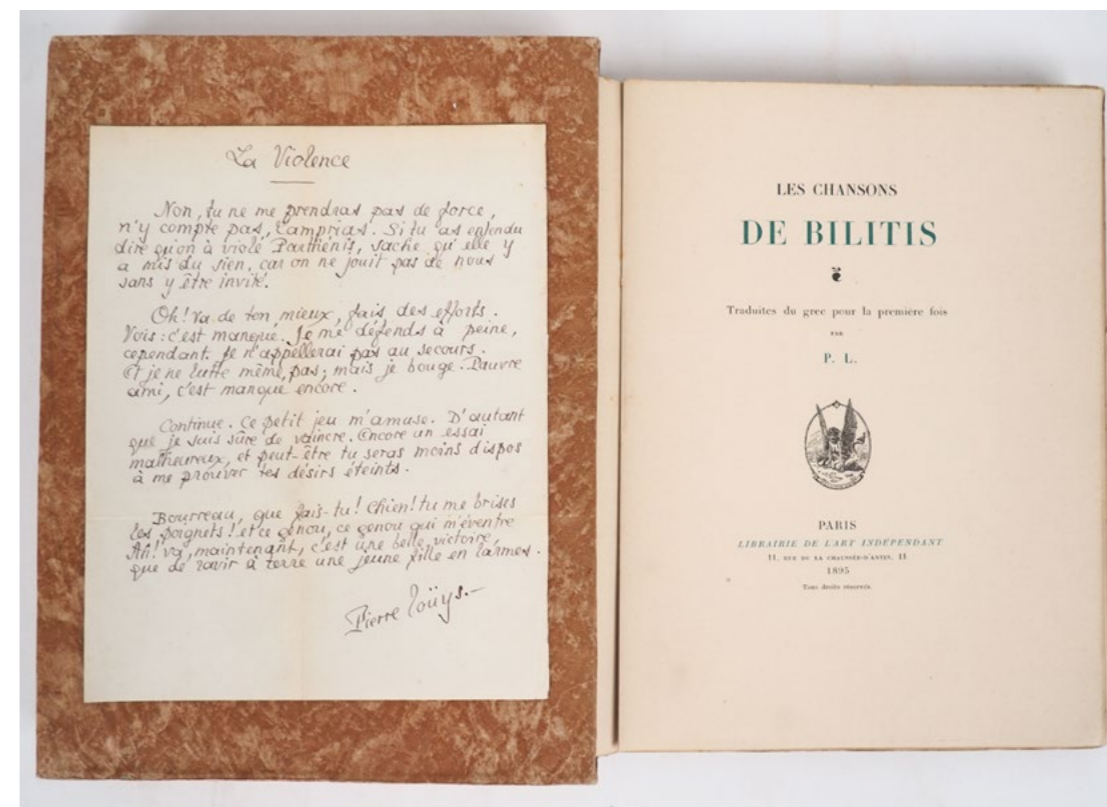 La Violence
Non, tu ne me prendras pas de force,
n'y compte pas, Lamprias. Si tu as entendu
dire qu'on à violé Parthénis, sache qu'elle y
a mis du sien, car on ne jouit pas de nous
sans y être invité.
Oh! Va de ton mieux, fais des efforts.
Vois: c'est manqué. Je me défends à peine,
cependant. Je n'appellerai pas au secours.
Et je ne lutte même pas; mais je bouge. Pauvre
ami, c'est manqué encore.
Continue. Ce petit jeu m'amuse. D'autant
que je suis sûre de vaincre. Encore un essai
malheureux, et peut-être tu seras moins dispos
à me prouver tes désirs éteints.
Bourreau, que fais-tu! Chien! tu me brises
les poignets! et ce genou, ce genou qui m'éventre
Ah! va, maintenant, c'est une belle victoire,
que de ravir à terre une jeune fille en larmes.
Pierre Louÿs.-
LES CHANSONS
DE BILITIS
Traduites du grec pour la première fois
PAR
P. L.
PARIS
LIBRAIRIE DE L'ART INDÉPENDANT
11, RUE DE LA CHAUSSÉE-D'ANTIN, 11
1895
Tous droits réservés.